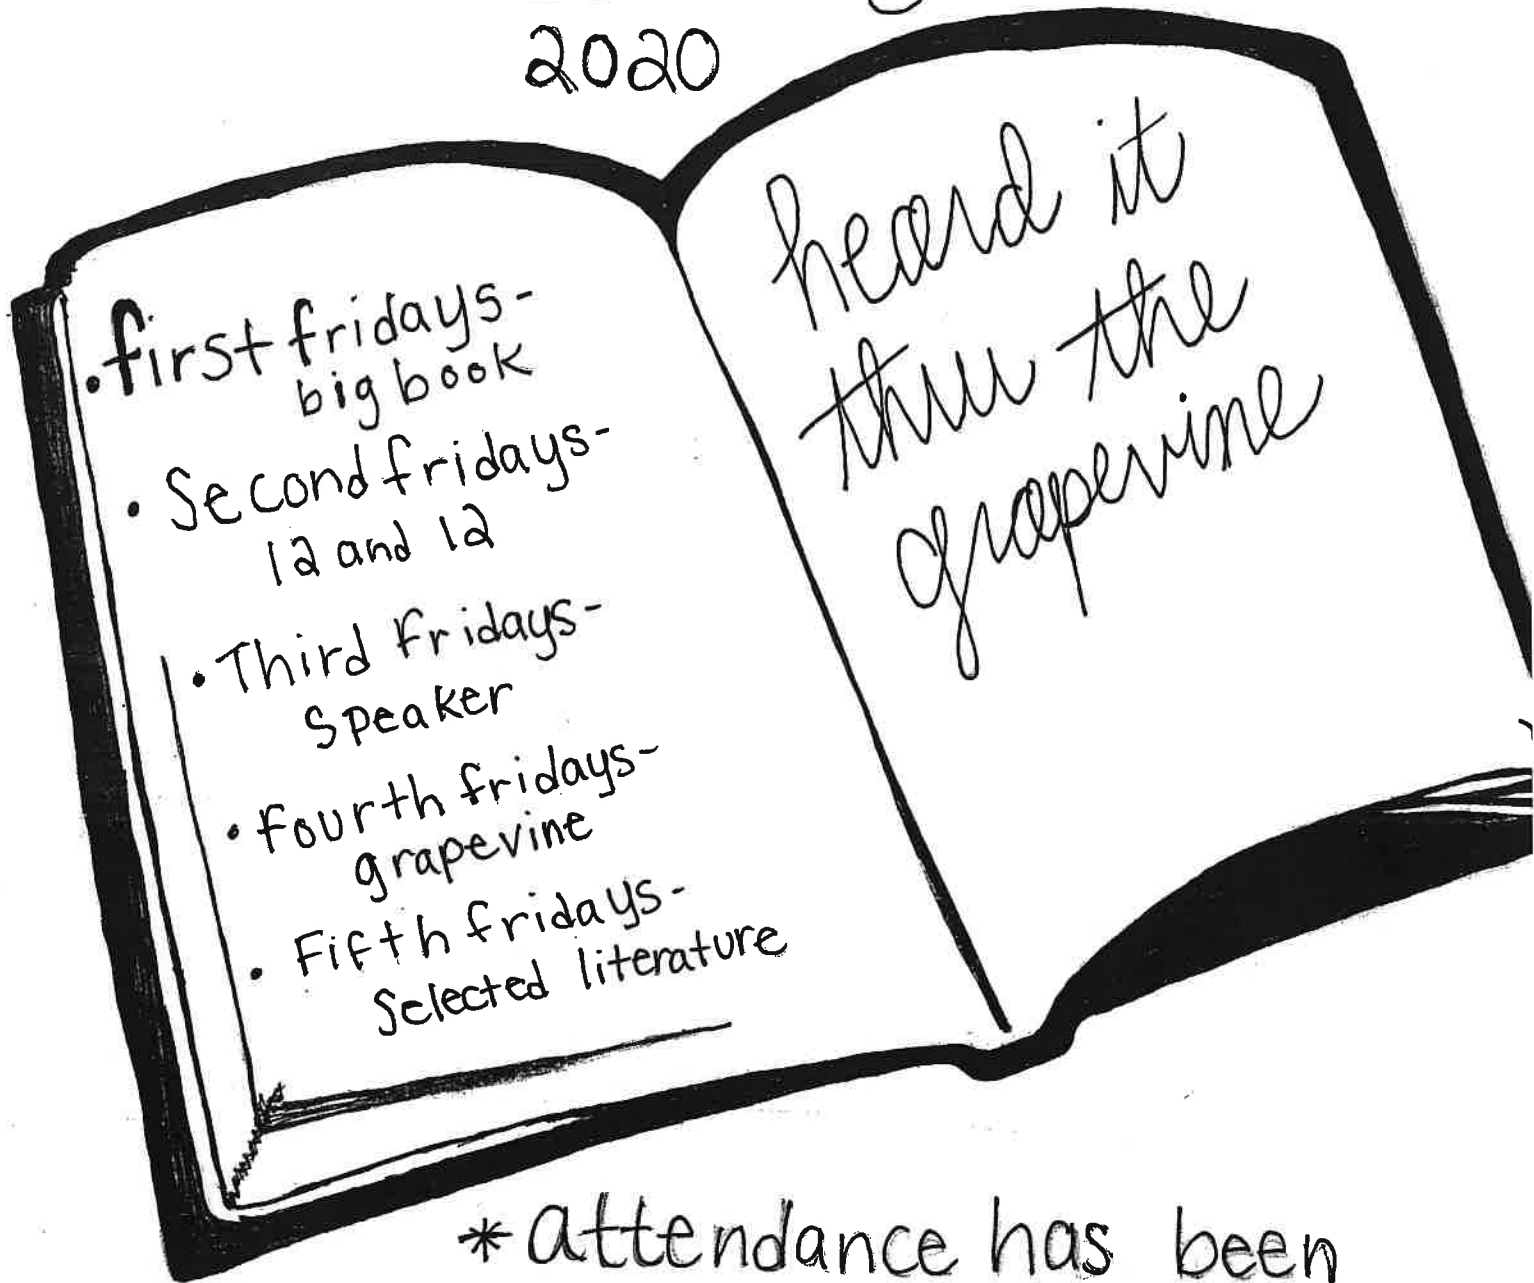 2020
• first fridays-
big book
• Second fridays-
12 and 12
• Third Fridays-
Speaker
• fourth fridays-
grapevine
• Fifth fridays-
Selected literature
heard it
thru the
grapevine
* attendance has been